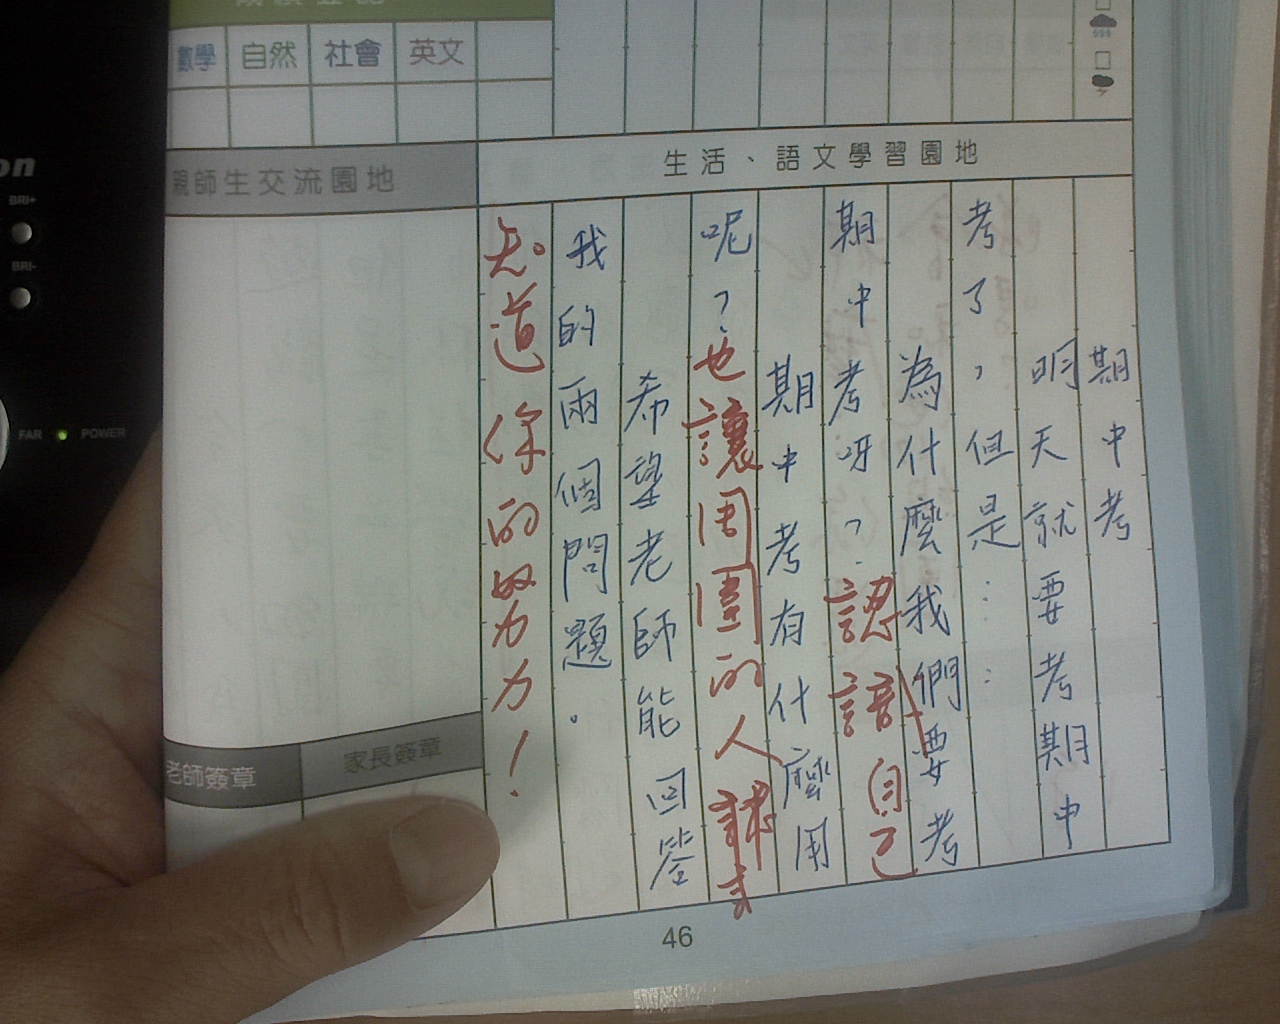 數學 自然 社會 英文
生活、語文學習園地
親師生交流園地
期中考
明天就要考期中
考了,但是……
為什麼我們要考
期中考呀?認識自己
期中考有什麼用
呢?也讓周圍的人
希望老師能回答
我的兩個問題。
知道你的努力!
老師簽章
家長簽章
46
BRI+
BRI-
FAR
POWER
on